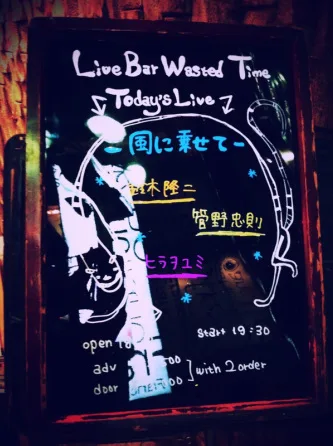 Live Bar Wasted Time
Today's Live
- 風に乗せて -
鈴木隆二
管野忠則
ヒラヲユミ
open
start 19:30
adv
door
with 2 order